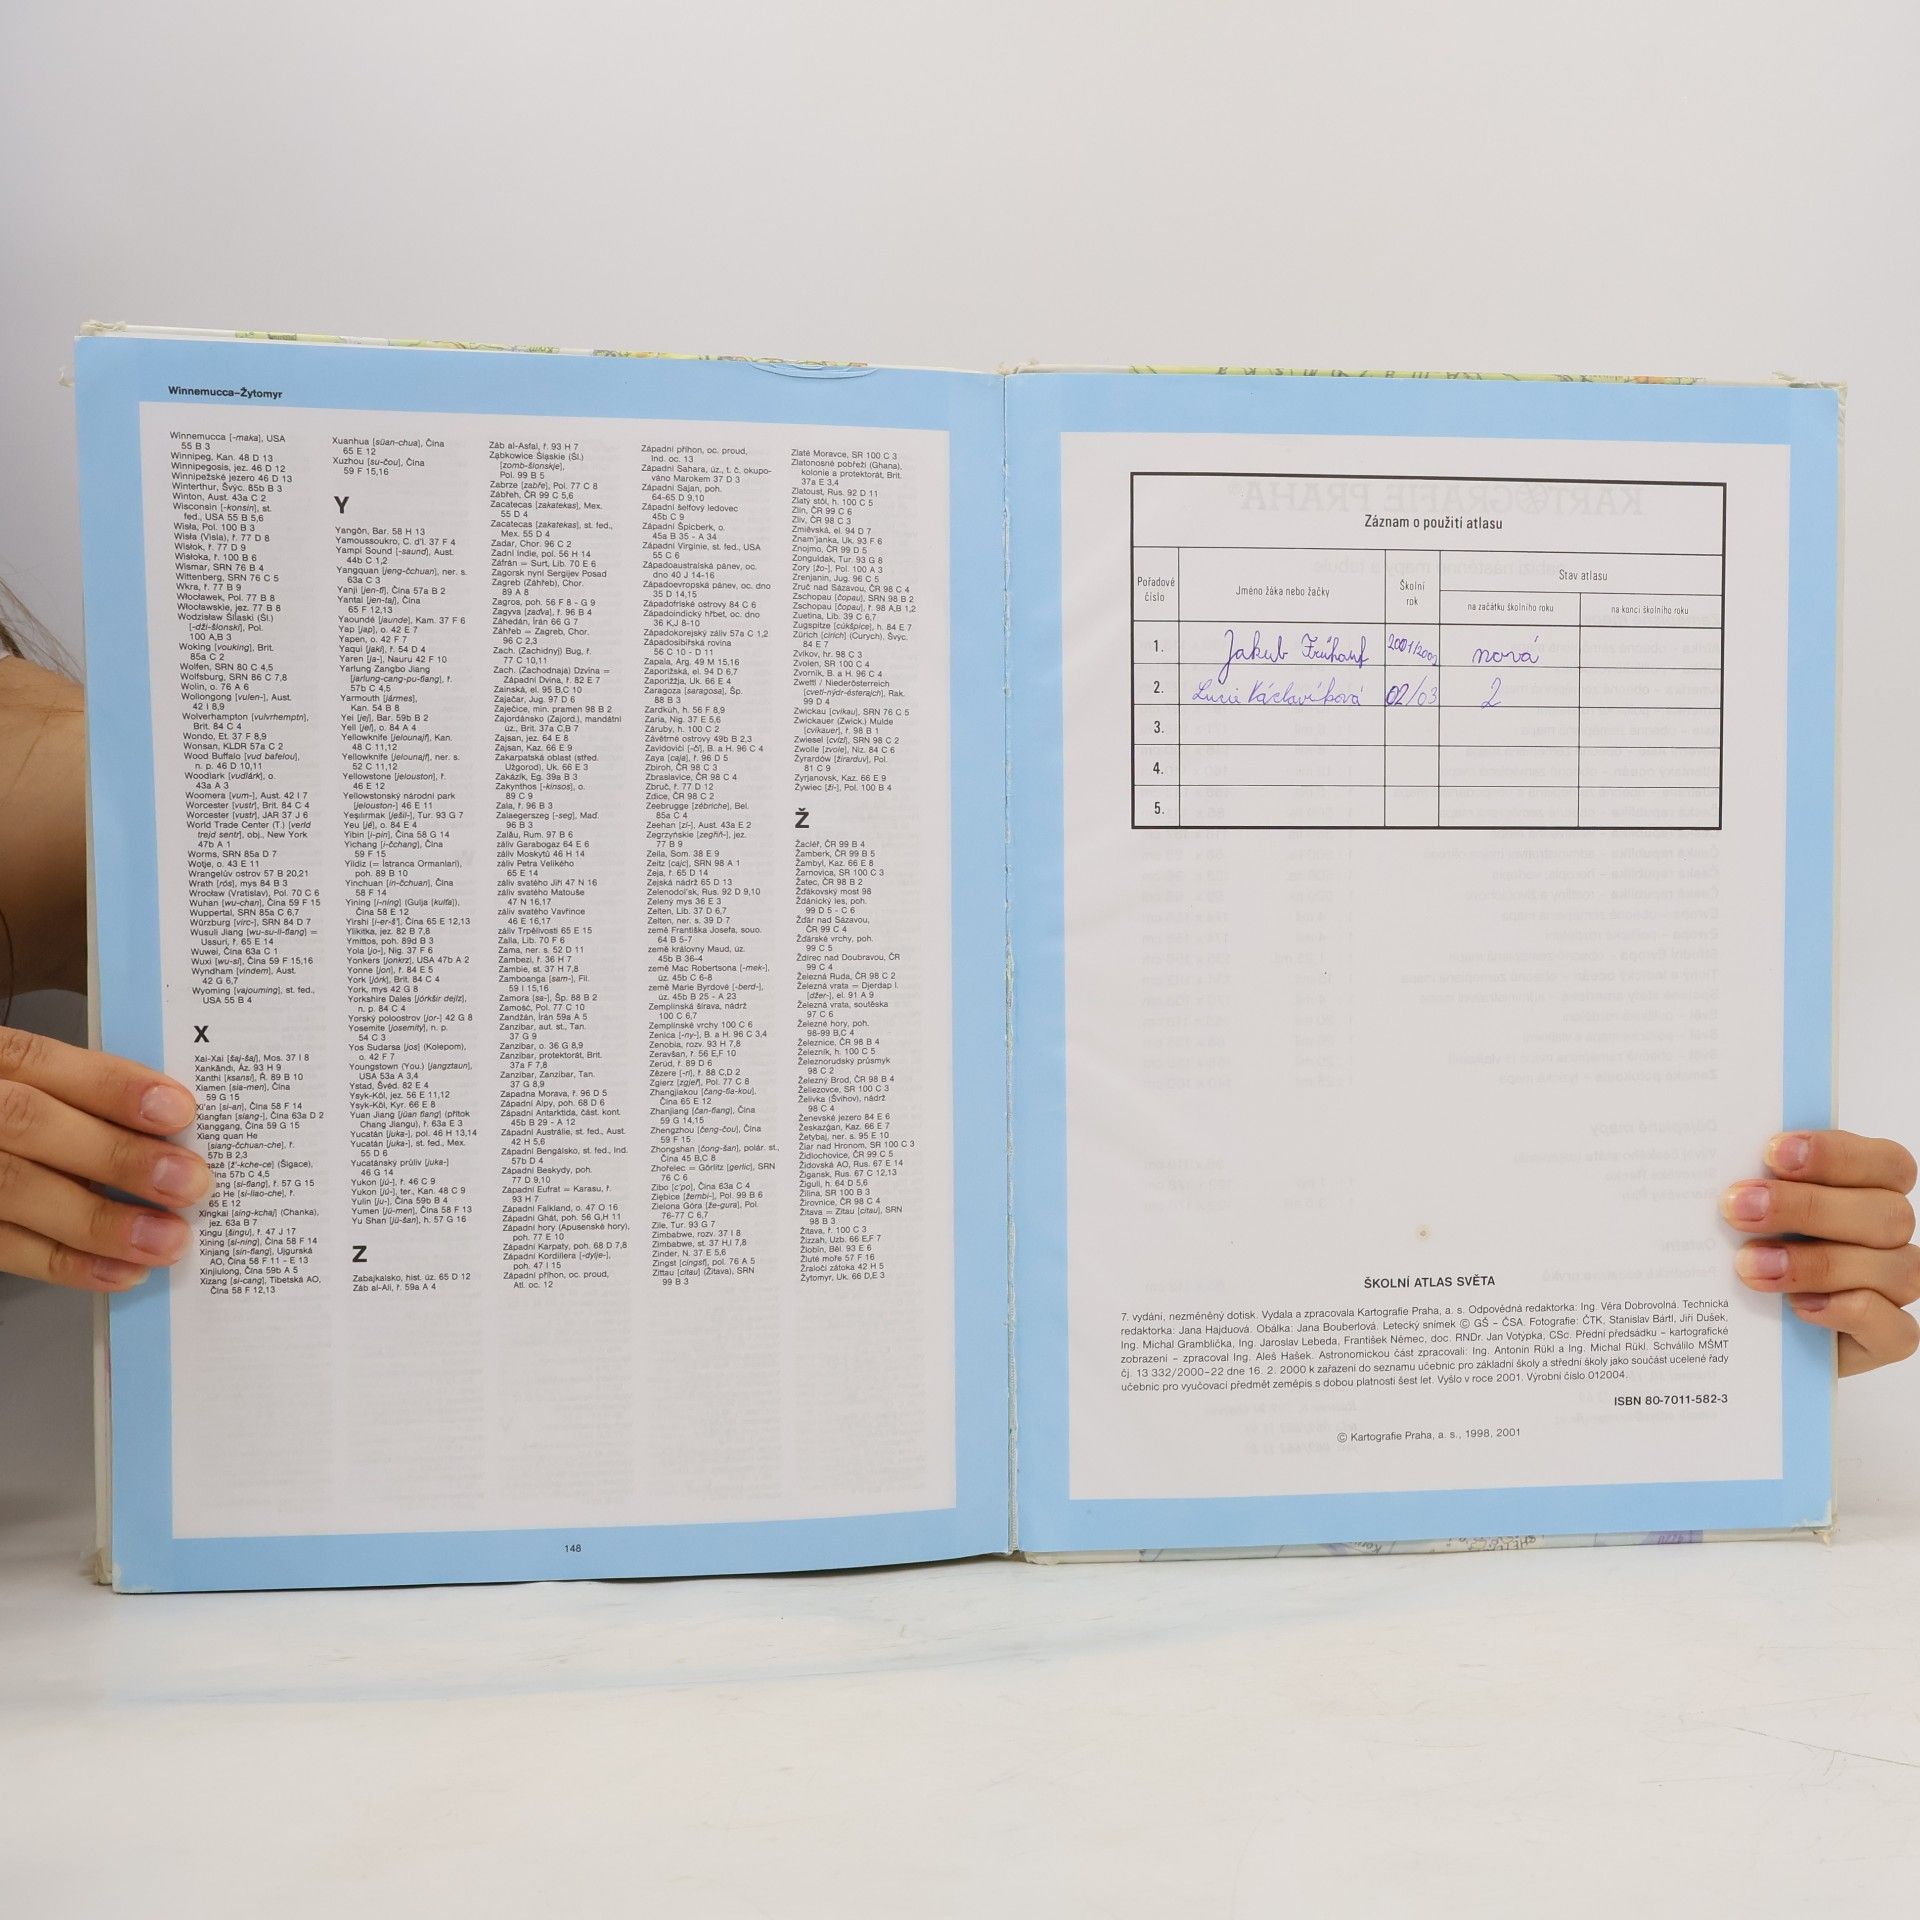 Winnemucca–Žytomyr
Winnemucca [-maka], USA
55 B 3
Winnipeg, Kan. 48 D 13
Winnipegosis, jez. 46 D 12
Winnipežské jezero 46 D 13
Winterthur, Švýc. 85b B 3
Winton, Aust. 43a C 2
Wisconsin [-konsin], st.
fed., USA 55 B 5,6
Wisła, Pol. 100 B 3
Wisła (Visla), ř. 77 D 8
Wisłok, ř. 77 D 9
Wisłoka, ř. 100 B 6
Wismar, SRN 76 B 4
Wittenberg, SRN 76 C 5
Wkra, ř. 77 B 9
Włocławek, Pol. 77 B 8
Włocławskie, jez. 77 B 8
Wodzisław Śląski (Śl.)
[-dži-šlonski], Pol.
100 A,B 3
Woking [vouking], Brit.
85a C 2
Wolfen, SRN 80 C 4,5
Wolfsburg, SRN 86 C 7,8
Wolin, o. 76 A 6
Wollongong [vulen-], Aust.
42 I 8,9
Wolverhampton [vulvrhemptn],
Brit. 84 C 4
Wondo, Et. 37 F 8,9
Wonsan, KLDR 57a C 2
Wood Buffalo [vud bafelou],
n. p. 46 D 10,11
Woodlark [vudlárk], o.
43a A 3
Woomera [vum-], Aust. 42 I 7
Worcester [vustr], Brit. 84 C 4
Worcester [vustr], JAR 37 J 6
World Trade Center (T.) [verld
trejd sentr], obj., New York
47b A 1
Worms, SRN 85a D 7
Wotje, o. 43 E 11
Wrangelův ostrov 57 B 20,21
Wrath [rós], mys 84 B 3
Wrocław (Vratislav), Pol. 70 C 6
Wuhan [wu-chan], Čína 59 F 15
Wuppertal, SRN 85a C 6,7
Würzburg [virc-], SRN 84 D 7
Wusuli Jiang [wu-su-li-ťiang] =
Ussuri, ř. 65 E 14
Wuwei, Čína 63a C 1
Wuxi [wu-si], Čína 59 F 15,16
Wyndham [vindem], Aust.
42 G 6,7
Wyoming [vajouming], st. fed.,
USA 55 B 4
X
Xai-Xai [šaj-šaj], Mos. 37 I 8
Xankändi, Áz. 93 H 9
Xanthi [ksansi], Ř. 89 B 10
Xiamen [sia-men], Čína
59 G 15
Xi'an [si-an], Čína 58 F 14
Xiangfan [siang-], Čína 63a D 2
Xianggang, Čína 59 G 15
Xiang quan He
[siang-čchuan-che], ř.
57b B 2,3
[ž'-kche-ce] (Šigace),
57b C 4,5
[si-ťiang], ř. 57 G 15
He [si-liao-che], ř.
65 E 12
Xingkai [sing-kchaj] (Chanka),
jez. 63a B 7
Xingu [šingu], ř. 47 J 17
Xining [si-ning], Čína 58 F 14
Xinjang [sin-ťiang], Ujgurská
AO, Čína 58 F 11 - E 13
Xinjiulong, Čína 59b A 5
Xizang [si-cang], Tibetská AO,
Čína 58 F 12,13
Xuanhua [süan-chua], Čína
65 E 12
Xuzhou [su-čou], Čína
59 F 15,16
Y
Yangôn, Bar. 58 H 13
Yamoussoukro, C. d'I. 37 F 4
Yampi Sound [-saund], Aust.
44b C 1,2
Yangquan [jeng-čchuan], ner. s.
63a C 3
Yanji [jen-ťi], Čína 57a B 2
Yantai [jen-taj], Čína
65 F 12,13
Yaoundé [jaunde], Kam. 37 F 6
Yap [jap], o. 42 E 7
Yapen, o. 42 F 7
Yaqui [jaki], ř. 54 D 4
Yaren [ja-], Nauru 42 F 10
Yarlung Zangbo Jiang
[jarlung-cang-pu-ťiang], ř.
57b C 4,5
Yarmouth [jármes],
Kan. 54 B 8
Yei [jej], Bar. 59b B 2
Yell [jel], o. 84 A 4
Yellowknife [jelounajf], Kan.
48 C 11,12
Yellowknife [jelounajf], ner. s.
52 C 11,12
Yellowstone [jelouston], ř.
46 E 12
Yellowstonský národní park
[jelouston-] 46 E 11
Yeşilırmak [ješil-], Tur. 93 G 7
Yeu [jé], o. 84 E 4
Yibin [i-pin], Čína 58 G 14
Yichang [i-čchang], Čína
59 F 15
Yildiz (= Istranca Ormanlari),
poh. 89 B 10
Yinchuan [in-čchuan], Čína
58 F 14
Yining [i-ning] (Gulja [kulťa]),
Čína 58 E 12
Yirshi [i-er-š'], Čína 65 E 12,13
Ylikitka, jez. 82 B 7,8
Ymittos, poh. 89d B 3
Yola [jo-], Nig. 37 F 6
Yonkers [jonkrz], USA 47b A 2
Yonne [jon], ř. 84 E 5
York [jórk], Brit. 84 C 4
York, mys 42 G 8
Yorkshire Dales [jórkšir dejlz],
n. p. 84 C 4
Yorský poloostrov [jor-] 42 G 8
Yosemite [josemity], n. p.
54 C 3
Yos Sudarsa [jos] (Kolepom),
o. 42 F 7
Youngstown (You.) [jangztaun],
USA 53a A 3,4
Ystad, Švéd. 82 E 4
Ysyk-Köl, jez. 56 E 11,12
Ysyk-Köl, Kyr. 66 E 8
Yuan Jiang [jüan ťiang] (přítok
Chang Jiangu), ř. 63a E 3
Yucatán [juka-], pol. 46 H 13,14
Yucatán [juka-], st. fed., Mex.
55 D 6
Yucatánský průliv [juka-]
46 G 14
Yukon [jú-], ř. 46 C 9
Yukon [jú-], ter., Kan. 48 C 9
Yulin [ju-], Čína 59b B 4
Yumen [jü-men], Čína 58 F 13
Yu Shan [jü-šan], h. 57 G 16
Z
Zabajkalsko, hist. úz. 65 D 12
Záb al-Alí, ř. 59a A 4
Záb al-Asfal, ř. 93 H 7
Ząbkowice Śląskie (Śl.)
[zomb-šlonskje],
Pol. 99 B 5
Zabrze [zabře], Pol. 77 C 8
Zábřeh, ČR 99 C 5,6
Zacatecas [zakatekas], Mex.
55 D 4
Zacatecas [zakatekas], st. fed.,
Mex. 55 D 4
Zadar, Chor. 96 C 2
Zadní Indie, pol. 56 H 14
Záfrán = Surt, Lib. 70 E 6
Zagorsk nyní Sergijev Posad
Zagreb (Záhřeb), Chor.
89 A 8
Zagros, poh. 56 F 8 - G 9
Zagyva [zaďva], ř. 96 B 4
Záhedán, Írán 66 G 7
Záhřeb = Zagreb, Chor.
96 C 2,3
Zach. (Zachidnyj) Bug, ř.
77 C 10,11
Zach. (Zachodnaja) Dzvina =
Západní Dvina, ř. 82 E 7
Zainská, el. 95 B,C 10
Zaječar, Jug. 97 D 6
Zaječice, min. pramen 98 B 2
Zajordánsko (Zajord.), mandátní
úz., Brit. 37a C,B 7
Zajsan, jez. 64 E 8
Zajsan, Kaz. 66 E 9
Zakarpatská oblast (střed.
Užgorod), Uk. 66 E 3
Zakázík, Eg. 39a B 3
Zakynthos [-kinsos], o.
89 C 9
Zala, ř. 96 B 3
Zalaegerszeg [-seg], Mad.
96 B 3
Zalău, Rum. 97 B 6
záliv Garabogaz 64 E 6
záliv Moskytů 46 H 14
záliv Petra Velikého
65 E 14
záliv svatého Jiří 47 N 16
záliv svatého Matouše
47 N 16,17
záliv svatého Vavřince
46 E 16,17
záliv Trpělivosti 65 E 15
Zalla, Lib. 70 F 6
Zama, ner. s. 52 D 11
Zambezi, ř. 36 H 7
Zambie, st. 37 H 7,8
Zamboanga [sam-], Fil.
59 I 15,16
Zamora [sa-], Šp. 88 B 2
Zamość, Pol. 77 C 10
Zandžán, Írán 59a A 5
Zanzibar, aut. st., Tan.
37 G 9
Zanzibar, o. 36 G 8,9
Zanzibar, protektorát, Brit.
37a F 7,8
Zanzibar, Zanzibar, Tan.
37 G 8,9
Zapadna Morava, ř. 96 D 5
Západní Alpy, poh. 68 D 6
Západní Antarktida, část. kont.
45b B 29 - A 12
Západní Austrálie, st. fed., Aust.
42 H 5,6
Západní Bengálsko, st. fed., Ind.
57b D 4
Západní Beskydy, poh.
77 D 9,10
Západní Eufrat = Karasu, ř.
93 H 7
Západní Falkland, o. 47 O 16
Západní Ghát, poh. 56 G,H 11
Západní hory (Apusenské hory),
poh. 77 E 10
Západní Karpaty, poh. 68 D 7,8
Západní Kordillera [-dylje-],
poh. 47 I 15
Západní příhon, oc. proud,
Atl. oc. 12
Západní příhon, oc. proud,
Ind. oc. 13
Západní Sahara, úz., t. č. okupo-
váno Marokem 37 D 3
Západní Sajan, poh.
64-65 D 9,10
Západní šelfový ledovec
45b C 9
Západní Špicberk, o.
45a B 35 - A 34
Západní Virginie, st. fed., USA
55 C 6
Západoaustralská pánev, oc.
dno 40 J 14-16
Západoevropská pánev, oc. dno
35 D 14,15
Západofríské ostrovy 84 C 6
Západoindický hřbet, oc. dno
36 K,J 8-10
Západokorejský záliv 57a C 1,2
Západosibiřská rovina
56 C 10 - D 11
Zapala, Arg. 49 M 15,16
Zaporižská, el. 94 D 6,7
Zaporižžja, Uk. 66 E 4
Zaragoza [saragosa], Šp.
88 B 3
Zardkúh, h. 56 F 8,9
Zaria, Nig. 37 E 5,6
Záruby, h. 100 C 2
Závětrné ostrovy 49b B 2,3
Zavidovići [-či], B. a H. 96 C 4
Zaya [caja], ř. 96 D 5
Zbiroh, ČR 98 C 3
Zbraslavice, ČR 98 C 4
Zbruč, ř. 77 D 12
Zdice, ČR 98 C 2
Zeebrugge [zébriche], Bel.
85a C 4
Zeehan [zí-], Aust. 43a E 2
Zegrzyńskie [zegřiň-], jez.
77 B 9
Zeila, Som. 38 E 9
Zeitz [cajc], SRN 98 A 1
Zeja, ř. 65 D 14
Zejská nádrž 65 D 13
Zelenodol'sk, Rus. 92 D 9,10
Zelený mys 36 E 3
Zelten, Lib. 37 D 6,7
Zelten, ner. s. 39 D 7
země Františka Josefa, souo.
64 B 5-7
země královny Maud, úz.
45b B 36-4
země Mac Robertsona [-mek-],
úz. 45b C 6-8
země Marie Byrdové [-berd-],
úz. 45b B 25 - A 23
Zemplínská šírava, nádrž
100 C 6,7
Zemplínské vrchy 100 C 6
Zenica [-ny-], B. a H. 96 C 3,4
Zenobia, rozv. 93 H 7,8
Zeravšan, ř. 56 E,F 10
Zerud, ř. 89 D 6
Zêzere [-ri], ř. 88 C,D 2
Zgierz [zgjeř], Pol. 77 C 8
Zhangjiakou [čang-ťia-kou],
Čína 65 E 12
Zhanjiang [čan-ťiang], Čína
59 G 14,15
Zhengzhou [čeng-čou], Čína
59 F 15
Zhongshan [čong-šan], polár. st.,
Čína 45 B,C 8
Zhořelec = Görlitz [gerlic], SRN
76 C 6
Zibo [c'po], Čína 63a C 4
Ziębice [žembi-], Pol. 99 B 6
Zielona Góra [že-gura], Pol.
76-77 C 6,7
Zile, Tur. 93 G 7
Zimbabwe, rozv. 37 I 8
Zimbabwe, st. 37 H,I 7,8
Zinder, N. 37 E 5,6
Zingst [cingst], pol. 76 A 5
Zittau [citau] (Žitava), SRN
99 B 3
Zlaté Moravce, SR 100 C 3
Zlatonosné pobřeží (Ghana),
kolonie a protektorát, Brit.
37a E 3,4
Zlatoust, Rus. 92 D 11
Zlatý stôl, h. 100 C 5
Zlín, ČR 99 C 6
Zliv, ČR 98 C 3
Zmiěvská, el. 94 D 7
Znam'janka, Uk. 93 F 6
Znojmo, ČR 99 D 5
Zonguldak, Tur. 93 G 8
Żory [žo-], Pol. 100 A 3
Zrenjanin, Jug. 96 C 5
Zruč nad Sázavou, ČR 98 C 4
Zschopau [čopau], SRN 98 B 2
Zschopau [čopau], ř. 98 A,B 1,2
Zuetina, Lib. 39 C 6,7
Zugspitze [cúkšpice], h. 84 E 7
Zürich [cirich] (Curych), Švýc.
84 E 7
Zvíkov, hr. 98 C 3
Zvolen, SR 100 C 4
Zvornik, B. a H. 96 C 4
Zwettl / Niederösterreich
[cvetl-nýdr-ésterajch], Rak.
99 D 4
Zwickau [cvikau], SRN 76 C 5
Zwickauer (Zwick.) Mulde
[cvikauer], ř. 98 B 1
Zwiesel [cvízl], SRN 98 C 2
Zwolle [zvole], Niz. 84 C 6
Żyrardów [žirarduv], Pol.
81 C 9
Zyrjanovsk, Kaz. 66 E 9
Żywiec [ži-], Pol. 100 B 4
Ž
Žacléř, ČR 99 B 4
Žamberk, ČR 99 B 5
Žambyl, Kaz. 66 E 8
Žarnovica, SR 100 C 3
Žatec, ČR 98 B 2
Žďákovský most 98
Ždánický les, poh.
99 D 5 - C 6
Žďár nad Sázavou,
ČR 99 C 4
Žďárské vrchy, poh.
99 C 5
Ždírec nad Doubravou, ČR
99 C 4
Železná Ruda, ČR 98 C 2
Železná vrata = Djerdap I.
[džer-], el. 91 A 9
Železná vrata, soutěska
97 C 6
Železné hory, poh.
98-99 B,C 4
Železnice, ČR 98 B 4
Železník, h. 100 C 5
Železnorudský průsmyk
98 C 2
Železný Brod, ČR 98 B 4
Želiezovce, SR 100 C 3
Želivka (Švihov), nádrž
98 C 4
Ženevské jezero 84 E 6
Žeskazgan, Kaz. 66 E 7
Žetybaj, ner. s. 95 E 10
Žiar nad Hronom, SR 100 C 3
Židlochovice, ČR 99 C 5
Židovská AO, Rus. 67 E 14
Žigansk, Rus. 67 C 12,13
Žiguli, h. 64 D 5,6
Žilina, SR 100 B 3
Žirovnice, ČR 98 C 4
Žitava = Zittau [citau], SRN
98 B 3
Žitava, ř. 100 C 3
Žizzah, Uzb. 66 E,F 7
Žlobin, Běl. 93 E 6
Žluté moře 57 F 16
Žraločí zátoka 42 H 5
Žytomyr, Uk. 66 D,E 3
148
Záznam o použití atlasu
Pořadové
číslo
Jméno žáka nebo žačky
Školní
rok
Stav atlasu
na začátku školního roku
na konci školního roku
1. Jakub Frühauf 2001/2002 nová
2. Lucie Václavíková 02/03 2
3.
4.
5.
ŠKOLNÍ ATLAS SVĚTA
7. vydání, nezměněný dotisk. Vydala a zpracovala Kartografie Praha, a. s. Odpovědná redaktorka: Ing. Věra Dobrovolná. Technická
redaktorka: Jana Hajduová. Obálka: Jana Bouberlová. Letecký snímek © GŠ – ČSA. Fotografie: ČTK, Stanislav Bártl, Jiří Dušek,
Ing. Michal Gramblička, Ing. Jaroslav Lebeda, František Němec, doc. RNDr. Jan Votýpka, CSc. Přední předsádku – kartografické
zobrazení – zpracoval Ing. Aleš Hašek. Astronomickou část zpracovali: Ing. Antonín Rükl a Ing. Michal Rükl. Schválilo MŠMT
čj. 13 332/2000–22 dne 16. 2. 2000 k zařazení do seznamu učebnic pro základní školy a střední školy jako součást ucelené řady
učebnic pro vyučovací předmět zeměpis s dobou platnosti šest let. Vyšlo v roce 2001. Výrobní číslo 012004.
ISBN 80-7011-582-3
© Kartografie Praha, a. s., 1998, 2001